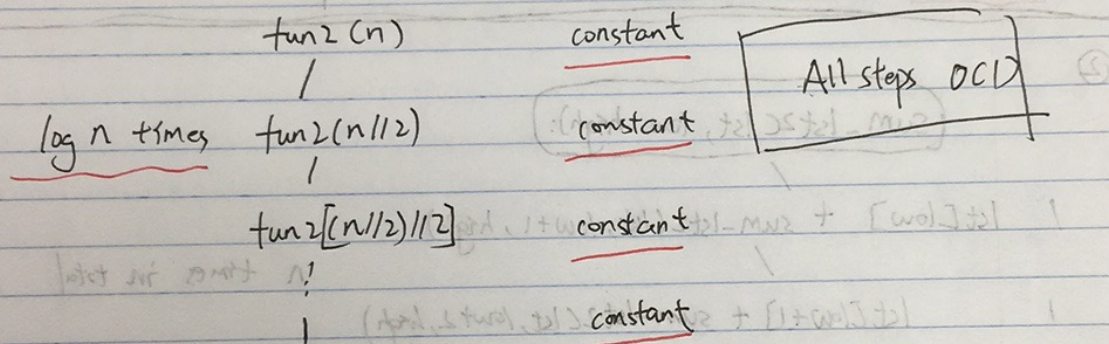 fun2 (n) constant
All steps O(1)
log n times fun2(n//2) constant
fun2[(n//2)//2] constant
constant